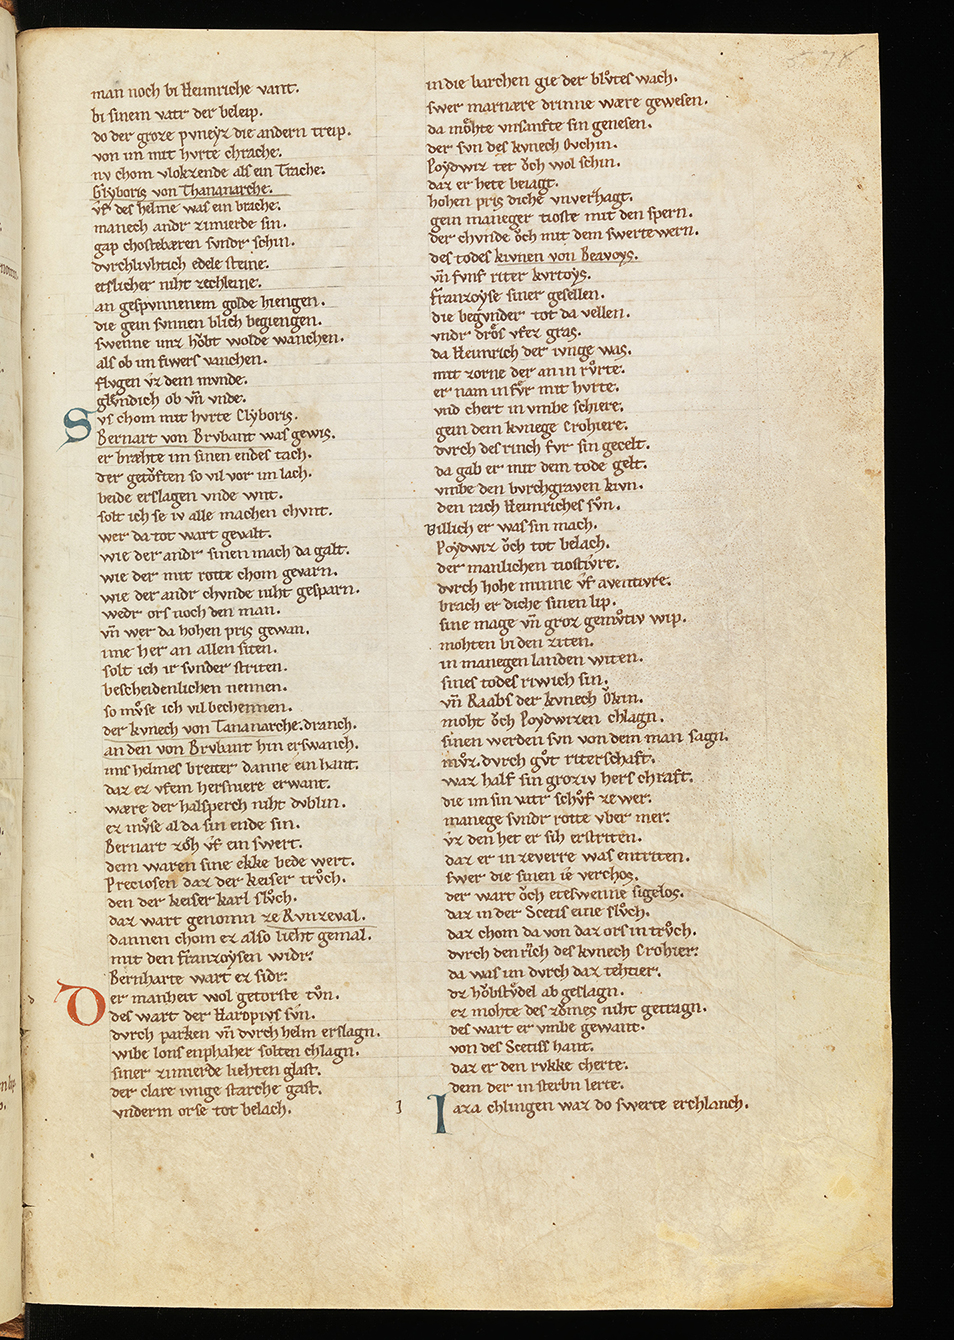 man noch bi Heimriche vant.
bi sinem vatr der beleip.
do der groze pvneyz die andern treip.
von im mit hvrte chrache.
nv chom vlokzende als ein Trache.
Glyboris von Thananarche.
vf des helme was ein drache.
manech andr zimierde sin.
gap chostebæren svndr schin.
dvrchlivhtich edele steine.
etslicher niht zechleine.
an gespvnnenem golde hiengen.
die gein svnnen blich begiengen.
swenne imz hobt wolde wanchen.
als ob im fiwers vanchen.
flvgen vz dem mvnde.
glvndich ob vn vnde.
Svs chom mit hvrte Clyboris.
Bernart von Brvbant was gewis.
er bræhte im sinen endes tach.
der getoften so vil vor im lach.
beide erslagen vnde wnt.
solt ich se iv alle machen chvnt.
wer da tot wart gevalt.
wie der andr sinen mach da galt.
wie der mit rotte chom gevarn.
wie der andr chvnde niht gesparn.
wedr ors noch den man.
vn wer da hohen pris gewan.
ime her an allen siten.
solt ich ir svnder striten.
bescheidenlichen nennen.
so mvse ich vil bechennen.
der kvnech von Tananarche. dranch.
an den von Brvbant hin erswanch.
ims helmes breiter danne ein hant.
daz ez vfem hersniere erwant.
wære der halsperch niht dvblin.
ez mvse al da sin ende sin.
Bernart zoh vf ein swert.
dem waren sine ekke bede wert.
Preciosen daz der keiser trvch.
den der keiser karl slvch.
daz wart genomn ze Rvnzeval.
dannen chom ez also lieht gemal.
mit den franzoysen widr.
Bernharte wart ez sidr.
Der manheit wol getorste tvn.
des wart der Haropivs svn.
dvrch parken vn dvrch helm erslagn.
wibe lons enphaher solten chlagn.
siner zimierde liehten glast.
der clare ivnge starche gast.
vnderm orse tot belach.
in die barchen gie der blvtes wach.
swer marnære drinne wære gewesen.
da mohte vnsanfte sin genesen.
der svn des kvnech Ovchin.
Poydwiz tet och wol schin.
daz er hete beiagt.
hohen pris diche vnverhagt.
gein maneger tioste mit den spern.
der chvnde och mit dem swerte wern.
des todes kivnen von Beavoys.
vn fvnf riter kvrtoys.
franzoyse siner gesellen.
die begvnder tot da vellen.
vndr dros vfez gras.
da Heimrich der ivnge was.
mit zorne der an in rvrte.
er nam in fvr mit hvrte.
vnd chert in vmbe schiere.
gein dem kvnege Crohiere.
dvrch des rinch fvr sin gecelt.
da gab er mit dem tode gelt.
vmbe den bvrchgraven kivn.
den rach Heimriches svn.
Billich er was sin mach.
Poydwiz och tot belach.
der manlichen tiostivre.
dvrch hohe minne vf aventivre.
brach er diche sinen lip.
sine mage vn groz gemvtiv wip.
mohten bi den ziten.
in manegen landen witen.
sines todes riwich sin.
vn Raabs der kvnech Okin.
moht och Poydwizen chlagn.
sinen werden svn von dem man sagn.
mvz. dvrch gvt riterschaft.
waz half sin groziv hers chraft.
die im sin vatr schvf ze wer.
manege svndr rotte vber mer.
vz den het er sih erstriten.
daz er in zeverre was entriten.
swer die sinen ie verchos.
der wart och etelswenne sigelos.
daz in der Scetis eine slvch.
daz chom da von daz ors in trvch.
dvrch den rich des kvnech Crohier.
da was im dvrch daz tehtier.
dz hobstvdel ab geslagn.
ez mohte des zomes niht getragn.
des wart er vmbe gewant.
von des Scetiss hant.
daz er den rvkke cherte.
dem der in sterbn lerte.
Iaza chlingen waz do swerte erchlanch.